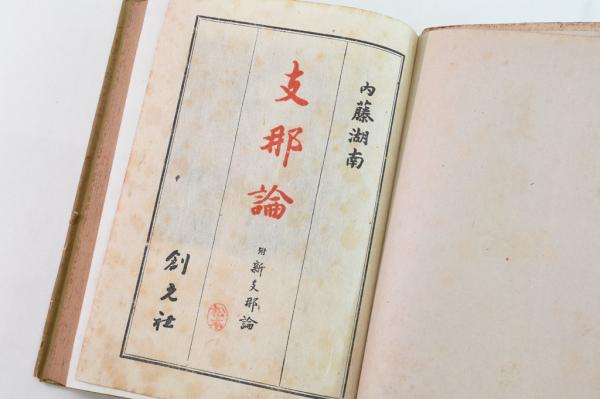 内藤湖南
支那論
附 新支那論
創元社